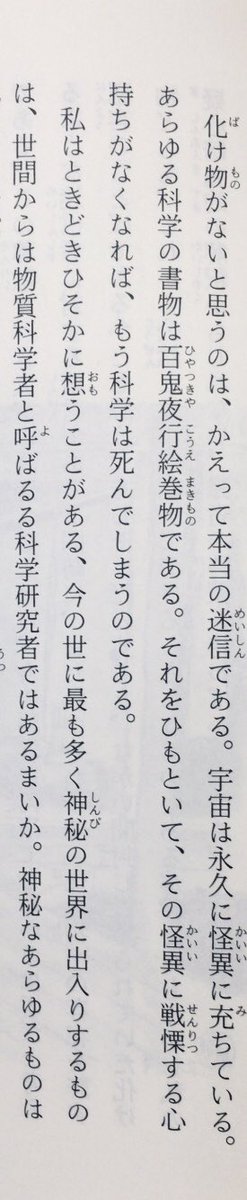 化け物がないと思うのは、かえって本当の迷信である。宇宙は永久に怪異に充ちている。
あらゆる科学の書物は百鬼夜行絵巻物である。それをひもといて、その怪異に戦慄する心
持ちがなくなれば、もう科学は死んでしまうのである。
私はときどきひそかに想うことがある、今の世に最も多く神秘の世界に出入りするもの
は、世間からは物質科学者と呼ばるる科学研究者ではあるまいか。神秘なあらゆるものは